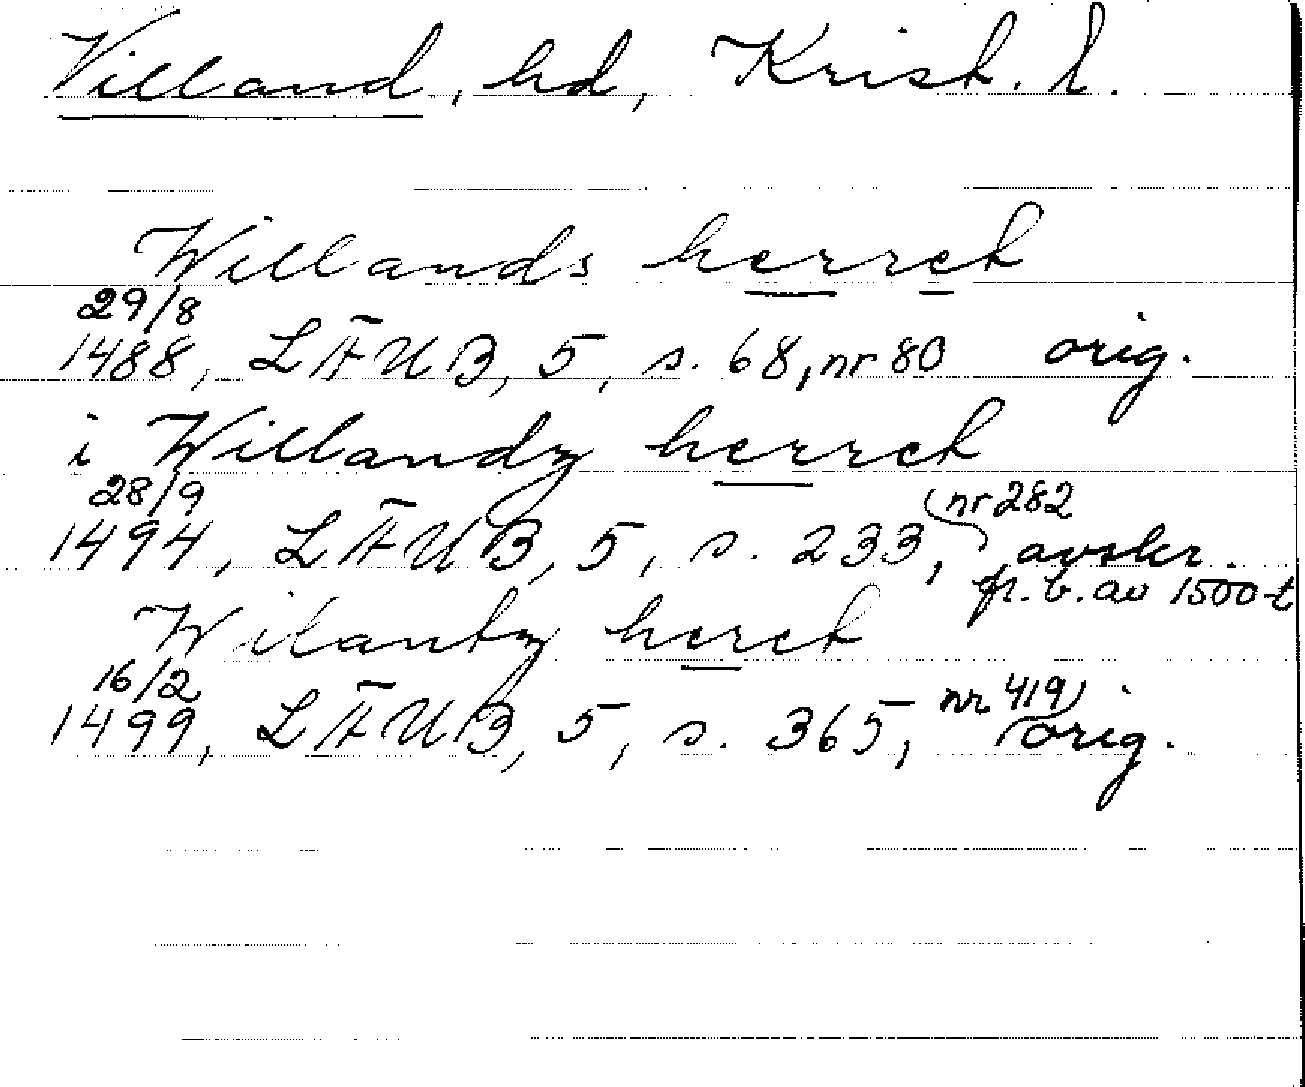 Villand, hd, Krist. l.
Willands herret
29/8
1488, LÄUB, 5, s. 68, nr 80 orig.
i Willandz herret
28/9
1494, LÄUB, 5, s. 233, nr 282 avskr.
fr. b. av 1500-t
Wilantz heret
16/2
1499, LÄUB, 5, s. 365, nr 419, orig.